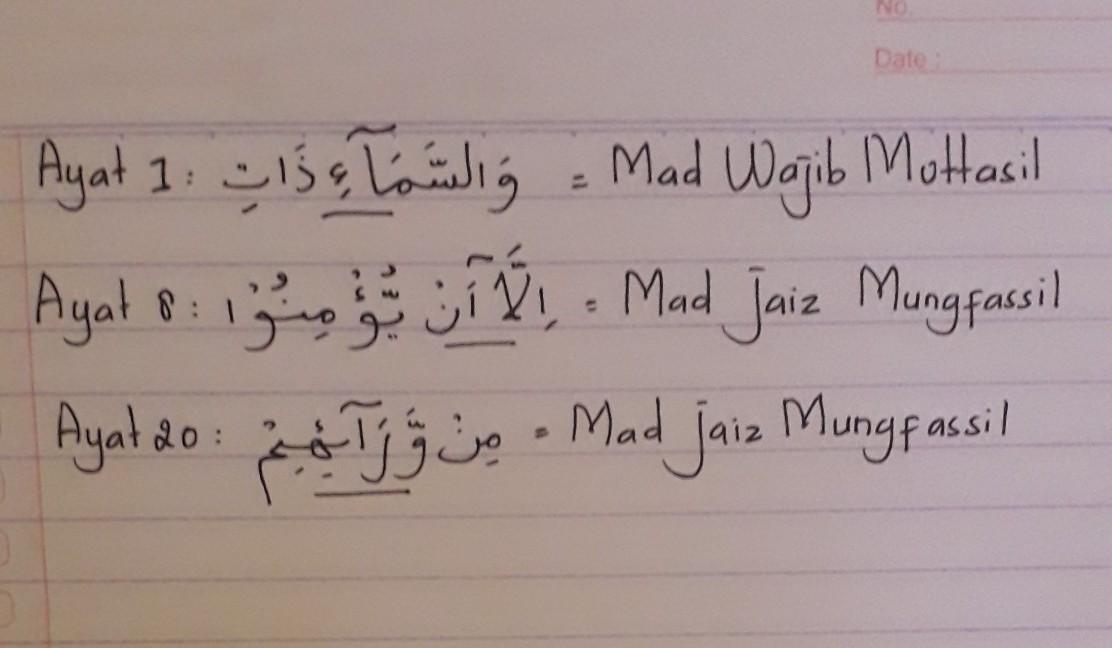 No.
Date :
Ayat 1 : وَالسَّمَآءِ ذَاتِ = Mad Wajib Mottasil
Ayat 8 : اِلَّآ اَنْ يُّؤْمِنُوْا = Mad Jaiz Mungfassil
Ayat 20 : مِنْ وَّرَآئِهِمْ = Mad Jaiz Mungfassil